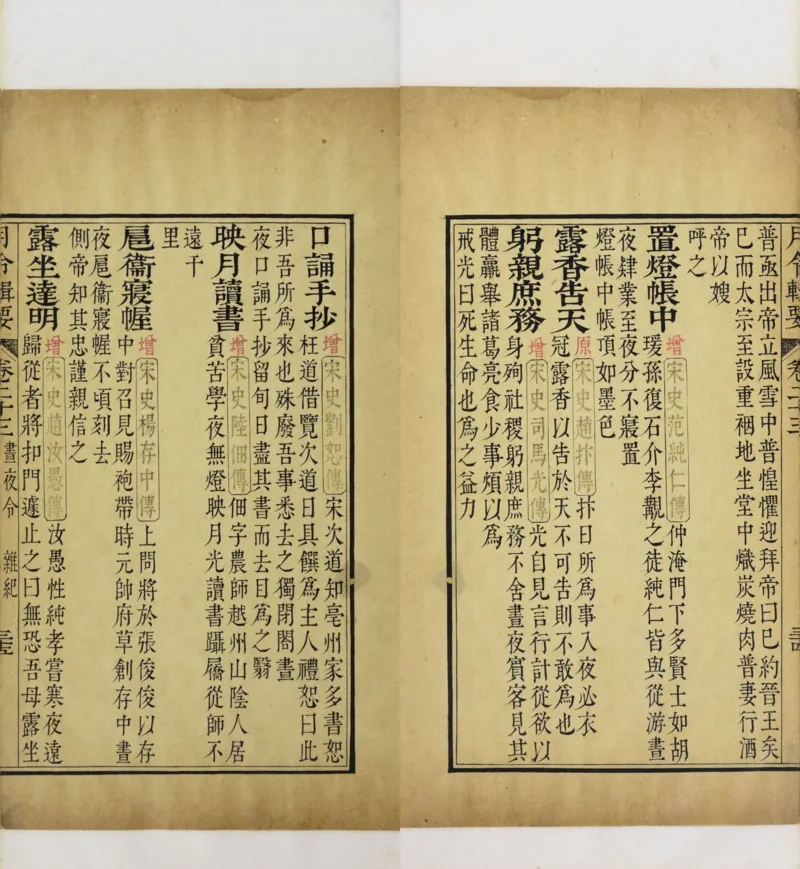 月令輯要 卷二十三
普亟出帝立風雪中普惶懼迎拜帝曰巳約晉王矣
巳而太宗至設重裀地坐堂中熾炭燒肉普妻行酒
帝以嫂
呼之
置燈帳中
增宋史范純仁傳仲淹門下多賢士如胡
瑗孫復石介李覯之徒純仁皆與從游晝
夜肄業至夜分不寢置
燈帳中帳頂如墨色
露香告天
原宋史趙抃傳抃日所爲事入夜必衣
冠露香以告於天不可告則不敢爲也
躬親庶務
增宋史司馬光傳光自見言行計從欲以
身殉社稷躬親庶務不舍晝夜賓客見其
體羸舉諸葛亮食少事煩以爲
戒光曰死生命也爲之益力
口誦手抄
增宋史劉恕傳宋次道知亳州家多書恕
枉道借覽次道日具饌爲主人禮恕曰此
非吾所爲來也殊廢吾事悉去之獨閉閤晝
夜口誦手抄留旬日盡其書而去目爲之翳
映月讀書
增宋史陸佃傳佃字農師越州山陰人居
貧苦學夜無燈映月光讀書躡屩從師不
遠千
里
扈衞寢幄
增宋史楊存中傳上問將於張俊俊以存
中對召見賜袍帶時元帥府草創存中晝
夜扈衞寢幄不頃刻去
側帝知其忠謹親信之
露坐達明
增宋史趙汝愚傳汝愚性純孝嘗寒夜遠
歸從者將扣門遽止之曰無恐吾母露坐
月令輯要 卷二十三 晝夜令 雜紀